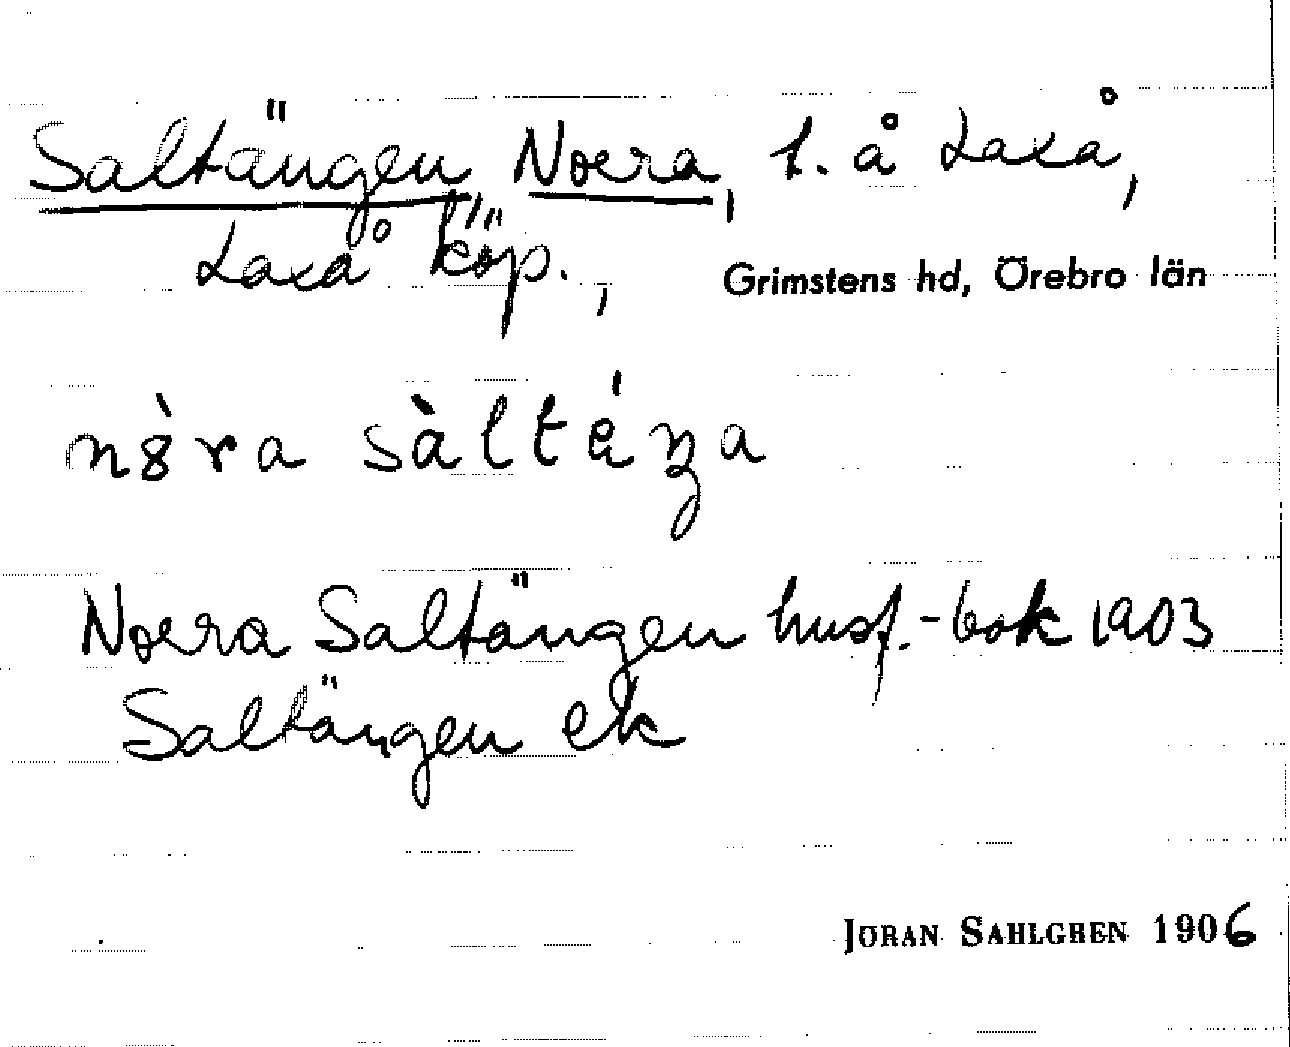 Saltängen, Noera, t. å Laxå,
Laxå köp., Grimstens hd, Örebro län
nȣ̀ra sàltéŋa
Noera Saltängen husf.-bok 1903
Saltängen ek
JÖRAN SAHLGREN 1906